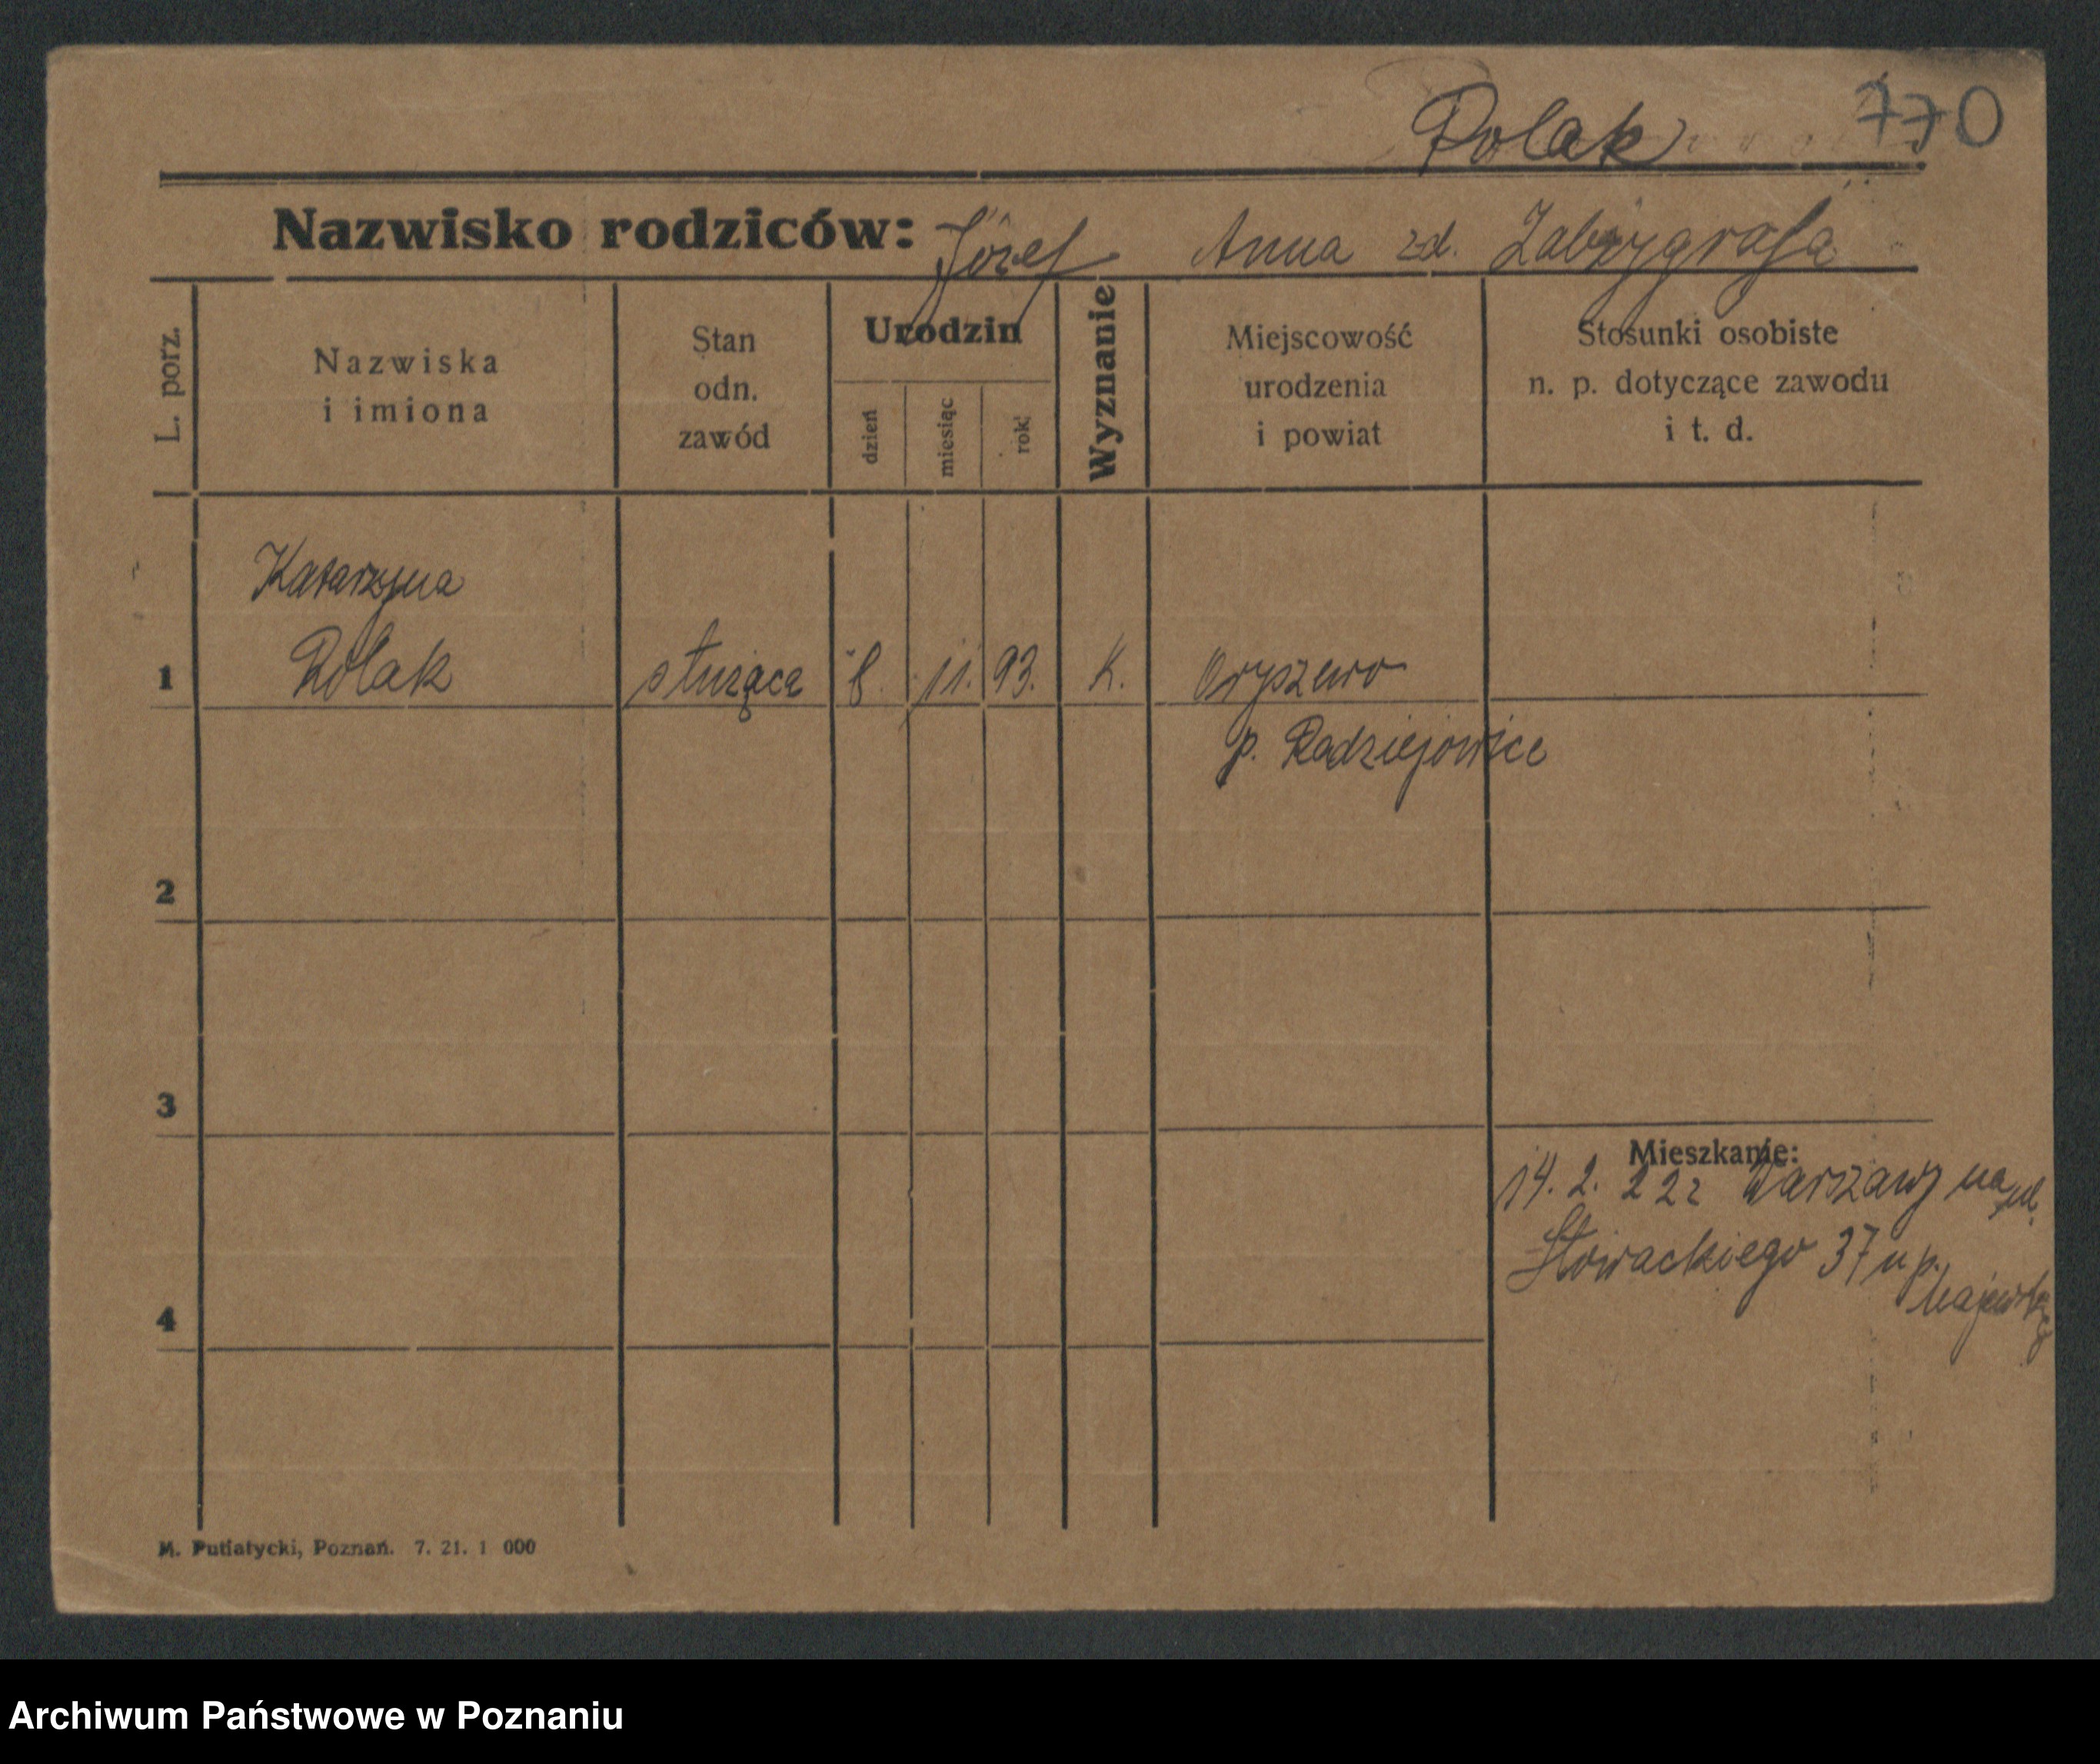 Polak 770
Nazwisko rodziców: Józef Anna zd.
L. porz.
Nazwiska
i imiona
Stan
odn.
zawód
Urodzin
dzień
miesiąc
rok
Wyznanie
Miejscowość
urodzenia
i powiat
Stosunki osobiste
n. p. dotyczące zawodu
i t. d.
Katarzyna
1 Polak służąca 8. 11. 93. K. Oryszewo
p. Radziejowice
2
3
Mieszkanie:
14. 2. 22 z Warszawy na ul.
Słowackiego 37 u p.
4
M. Putiatycki, Poznań. 7. 21. 1 000
Archiwum Państwowe w Poznaniu